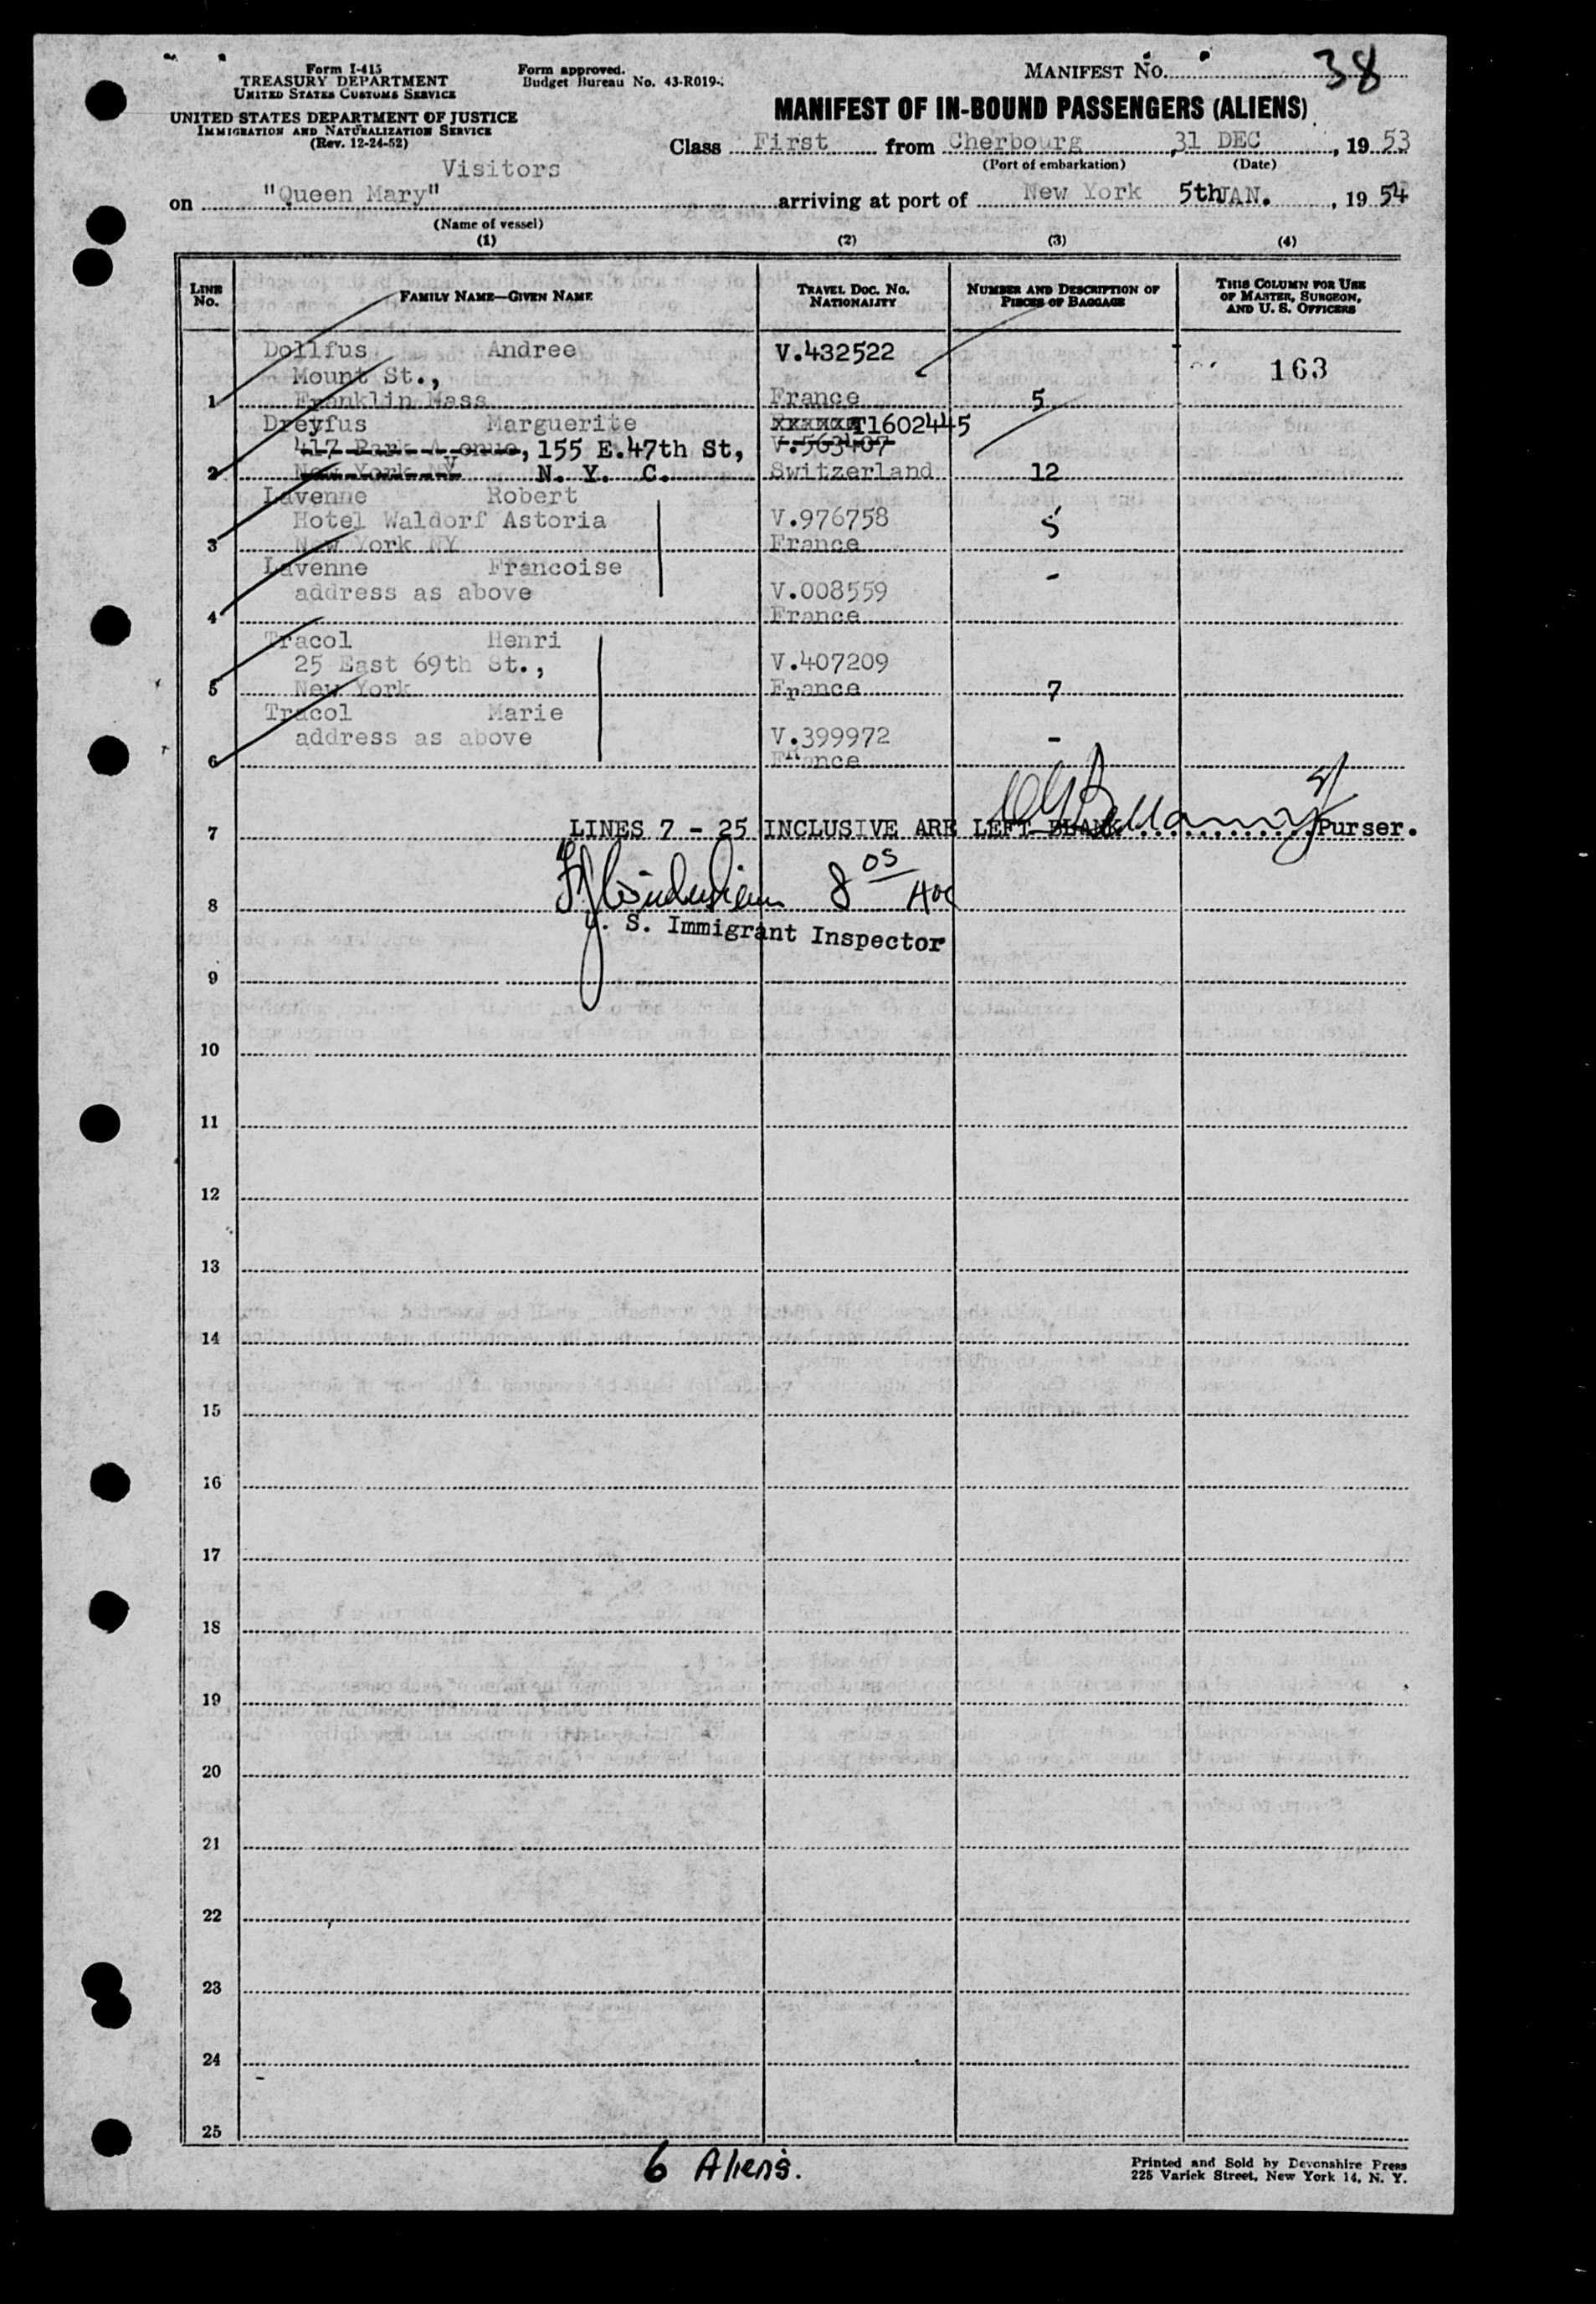 Form I-415
TREASURY DEPARTMENT
UNITED STATES CUSTOMS SERVICE
UNITED STATES DEPARTMENT OF JUSTICE
IMMIGRATION AND NATURALIZATION SERVICE
(Rev. 12-24-52)
Form approved.
Budget Bureau No. 43-R019-
MANIFEST NO. 38
MANIFEST OF IN-BOUND PASSENGERS (ALIENS)
Class First from Cherbourg, 31 DEC, 19 53
(Port of embarkation) (Date)
Visitors
on "Queen Mary" arriving at port of New York 5th JAN., 19 54
(Name of vessel)
(1) (2) (3) (4)
LINE No. FAMILY NAME—GIVEN NAME TRAVEL DOC. NO. NATIONALITY NUMBER AND DESCRIPTION OF PIECES OF BAGGAGE THIS COLUMN FOR USE OF MASTER, SURGEON, AND U. S. OFFICERS
Dollfus Andree V.432522
Mount St., 163
1 Franklin Mass France 5
Dreyfus Marguerite xxxxxx T1602445
417 Park Avenue, 155 E.47th St, V.563407
2 New York NY N. Y. C. Switzerland 12
Lavenne Robert
Hotel Waldorf Astoria V.976758 5
3 New York NY France
Lavenne Francoise -
address as above V.008559
4 France
Tracol Henri
25 East 69th St., V.407209
5 New York France 7
Tracol Marie
address as above V.399972 -
6 France
7 LINES 7 - 25 INCLUSIVE ARE LEFT BLANK Purser.
8 8 05
U. S. Immigrant Inspector
9
10
11
12
13
14
15
16
17
18
19
20
21
22
23
24
25
6 Aliens.
Printed and Sold by Devonshire Press
225 Varick Street, New York 14, N. Y.